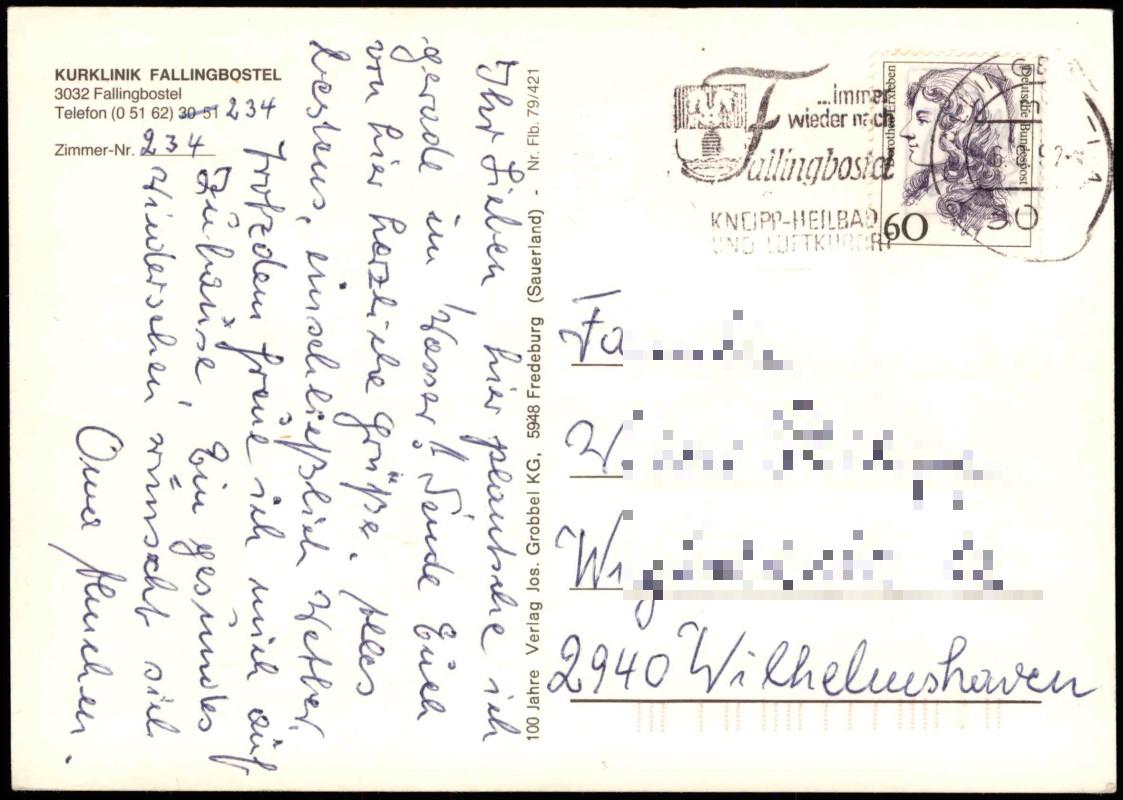 KURKLINIK FALLINGBOSTEL
3032 Fallingbostel
Telefon (0 51 62) 30 51 234
Zimmer-Nr. 234
Ihr Lieben hier plantsche ich
gerade im Wasser! Sende Euch
von hier herzliche Grüße. Alles
bestens, einschließlich Wetter,
trotzdem freue ich mich auf
Zuhause. Ein gesundes
Wiedersehen wünscht sich
Oma
100 Jahre Verlag Jos. Grobbel KG, 5948 Fredeburg (Sauerland) - Nr. Flb. 79/421
...immer
wieder nach
Fallingbostel
KNEIPP-HEILBAD
UND LUFTKURORT
Dorothea Erxleben
Deutsche Bundespost
60
2940 Wilhelmshaven